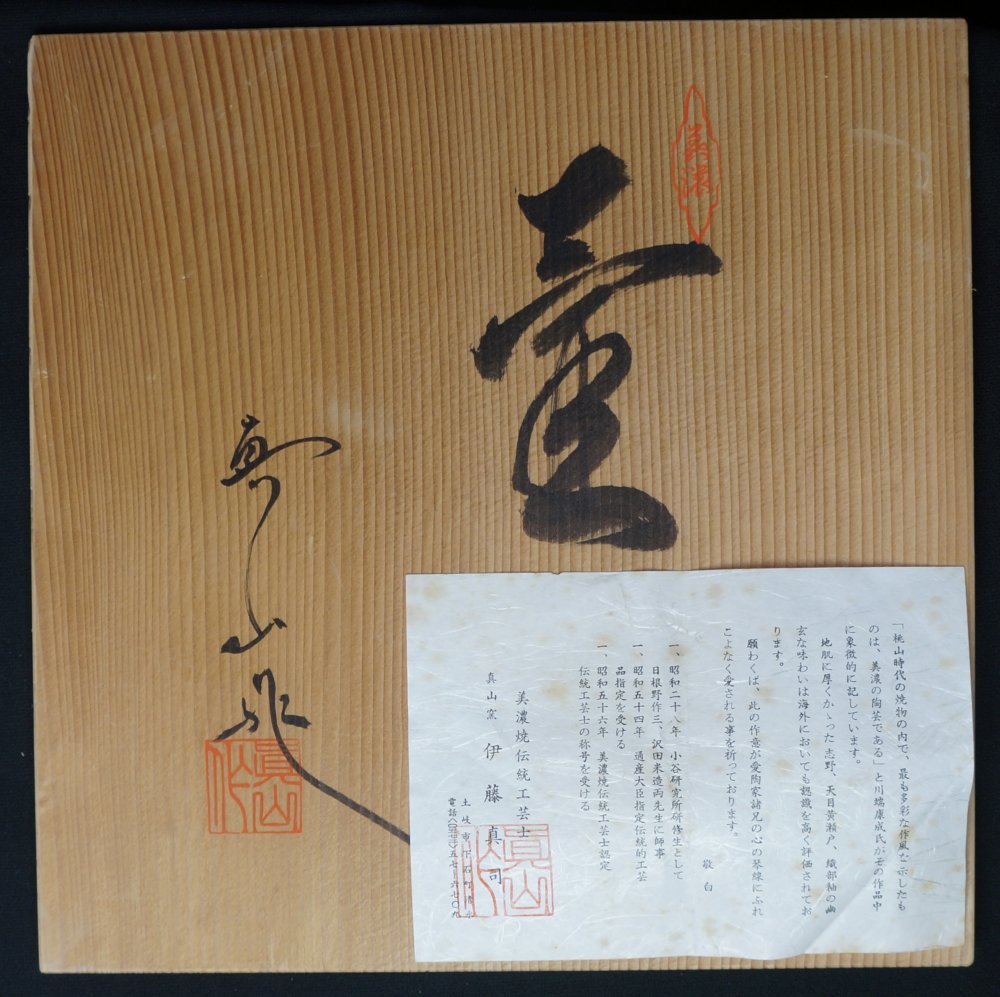 美濃
壷
真山作
真山作
「桃山時代の焼物の内で、最も多彩な作風を示したも
のは、美濃の陶芸である」と川端康成氏がその作品中
に象徴的に記しています。
地肌に厚くかゝった志野、天目黄瀬戸、織部釉の幽
玄な味わいは海外においても認識を高く評価されてお
ります。
願わくば、此の作意が愛陶家諸兄の心の琴線にふれ
こよなく愛される事を祈っております。
敬白
一、昭和二十八年 小谷研究所研修生として
日根野作三、沢田米造両先生に師事
一、昭和五十四年 通産大臣指定伝統的工芸
品指定を受ける
一、昭和五十六年 美濃焼伝統工芸士認定
伝統工芸士の称号を受ける
美濃焼伝統工芸士
真山窯 伊藤真司
土岐市下石町清水
電話〈〇五七二〉五七-六七〇九
眞山作